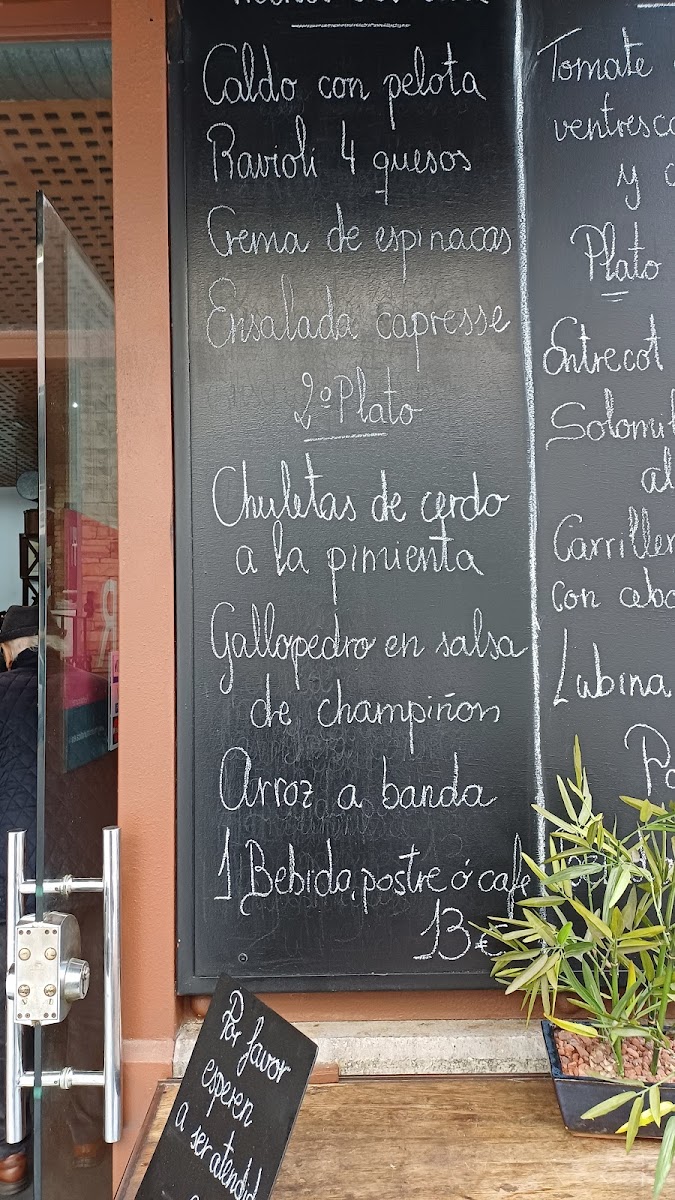 Caldo con pelota
Ravioli 4 quesos
Crema de espinacas
Ensalada capresse
2º Plato
Chuletas de cerdo
a la pimienta
Gallopedro en salsa
de champiñon
Arroz a banda
1 Bebida, postre ó cafe
13€
Tomate
ventresca
y
Plato
Entrecot
al
con
Lubina
Por favor
esperen
a ser